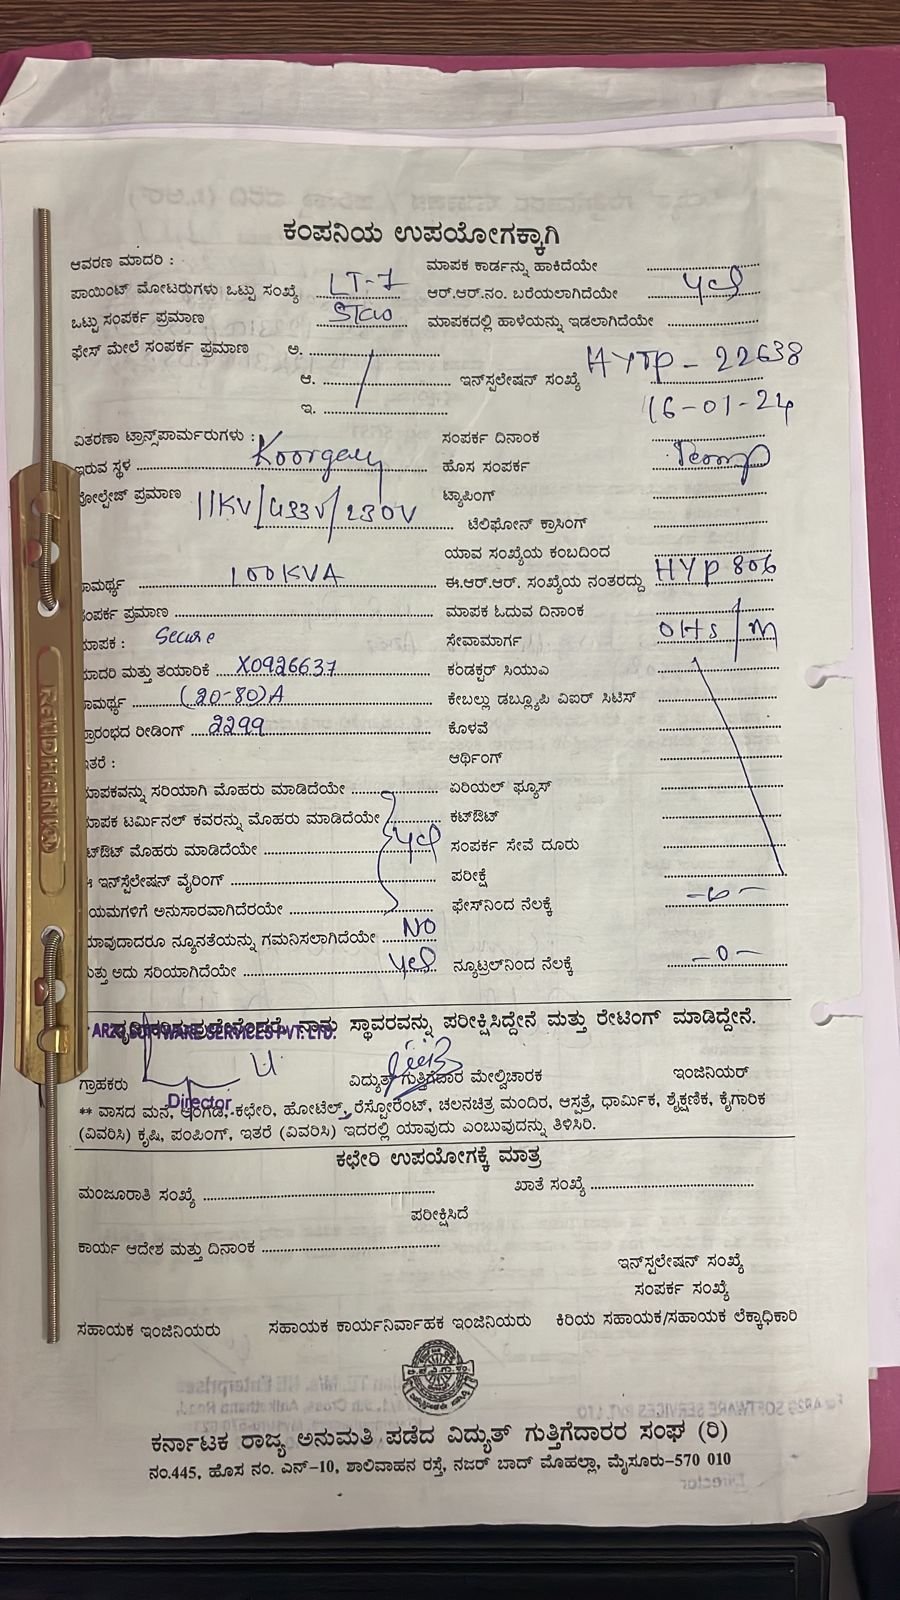 ಕಂಪನಿಯ ಉಪಯೋಗಕ್ಕಾಗಿ
ಆವರಣ ಮಾದರಿ :
ಮಾಪಕ ಕಾರ್ಡನ್ನು ಹಾಕಿದೆಯೇ
ಪಾಯಿಂಟ್ ಮೋಟರುಗಳು ಒಟ್ಟು ಸಂಖ್ಯೆ LT-7 ಆರ್.ಆರ್.ನಂ. ಬರೆಯಲಾಗಿದೆಯೇ Yes
ಒಟ್ಟು ಸಂಪರ್ಕ ಪ್ರಮಾಣ ಮಾಪಕದಲ್ಲಿ ಹಾಳೆಯನ್ನು ಇಡಲಾಗಿದೆಯೇ
ಫೇಸ್ ಮೇಲೆ ಸಂಪರ್ಕ ಪ್ರಮಾಣ ಅ.
ಆ. ಇನ್‌ಸ್ಟಲೇಷನ್ ಸಂಖ್ಯೆ HYTP - 22638
ಇ. 16-01-24
ವಿತರಣಾ ಟ್ರಾನ್ಸ್‌ಪಾರ್ಮರುಗಳು : ಸಂಪರ್ಕ ದಿನಾಂಕ
ಇರುವ ಸ್ಥಳ ಹೊಸ ಸಂಪರ್ಕ Temp
ವೋಲ್ಟೇಜ್ ಪ್ರಮಾಣ 11KV/433V/230V ಟ್ಯಾಪಿಂಗ್
ಟೆಲಿಫೋನ್ ಕ್ರಾಸಿಂಗ್
ಯಾವ ಸಂಖ್ಯೆಯ ಕಂಬದಿಂದ
ಾಮರ್ಥ್ಯ 100KVA ಈ.ಆರ್.ಆರ್. ಸಂಖ್ಯೆಯ ನಂತರದ್ದು HYP 806
ಸಂಪರ್ಕ ಪ್ರಮಾಣ ಮಾಪಕ ಓದುವ ದಿನಾಂಕ
ಮಾಪಕ : Secure ಸೇವಾಮಾರ್ಗ OHS/M
ಮಾದರಿ ಮತ್ತು ತಯಾರಿಕೆ X0926637 ಕಂಡಕ್ಟರ್ ಸಿಯುಎ
ಾಮರ್ಥ್ಯ (20-80)A ಕೇಬಲ್ಲು ಡಬ್ಲ್ಯೂಪಿ ವಿಐರ್ ಸಿಟಿಸ್
ಪ್ರಾರಂಭದ ರೀಡಿಂಗ್ 2299 ಕೊಳವೆ
ಇತರೆ : ಆರ್ಥಿಂಗ್
ಮಾಪಕವನ್ನು ಸರಿಯಾಗಿ ಮೊಹರು ಮಾಡಿದೆಯೇ ಏರಿಯಲ್ ಫ್ಯೂಸ್
ಮಾಪಕ ಟರ್ಮಿನಲ್ ಕವರನ್ನು ಮೊಹರು ಮಾಡಿದೆಯೇ ಕಟ್‌ಔಟ್
ಟ್‌ಔಟ್ ಮೊಹರು ಮಾಡಿದೆಯೇ Yes ಸಂಪರ್ಕ ಸೇವೆ ದೂರು
ಈ ಇನ್‌ಸ್ಟೆಲೇಷನ್ ವೈರಿಂಗ್ ಪರೀಕ್ಷೆ
ಯಮಗಳಿಗೆ ಅನುಸಾರವಾಗಿದೆರಯೇ ಫೇಸ್‌ನಿಂದ ನೆಲಕ್ಕೆ -0-
ಯಾವುದಾದರೂ ನ್ಯೂನತೆಯನ್ನು ಗಮನಿಸಲಾಗಿದೆಯೇ NO
ಮತ್ತು ಅದು ಸರಿಯಾಗಿದೆಯೇ Yes ನ್ಯೂಟ್ರಲ್‌ನಿಂದ ನೆಲಕ್ಕೆ -0-
SOFTWARE SERVICES PVT. LTD. ನಾನು ಸ್ಥಾವರವನ್ನು ಪರೀಕ್ಷಿಸಿದ್ದೇನೆ ಮತ್ತು ರೇಟಿಂಗ್ ಮಾಡಿದ್ದೇನೆ.
ಗ್ರಾಹಕರು ವಿದ್ಯುತ್ ಗುತ್ತಿಗೆದಾರ ಮೇಲ್ವಿಚಾರಕ ಇಂಜಿನಿಯರ್
Director
** ವಾಸದ ಮನೆ, ಅಂಗಡಿ, ಕಛೇರಿ, ಹೋಟೆಲ್, ರೆಸ್ಟೋರೆಂಟ್, ಚಲನಚಿತ್ರ ಮಂದಿರ, ಆಸ್ಪತ್ರೆ, ಧಾರ್ಮಿಕ, ಶೈಕ್ಷಣಿಕ, ಕೈಗಾರಿಕ
(ವಿವರಿಸಿ) ಕೃಷಿ, ಪಂಪಿಂಗ್, ಇತರೆ (ವಿವರಿಸಿ) ಇದರಲ್ಲಿ ಯಾವುದು ಎಂಬುವುದನ್ನು ತಿಳಿಸಿರಿ.
ಕಛೇರಿ ಉಪಯೋಗಕ್ಕೆ ಮಾತ್ರ
ಮಂಜೂರಾತಿ ಸಂಖ್ಯೆ ಖಾತೆ ಸಂಖ್ಯೆ
ಪರೀಕ್ಷಿಸಿದೆ
ಕಾರ್ಯ ಆದೇಶ ಮತ್ತು ದಿನಾಂಕ
ಇನ್‌ಸ್ಟಲೇಷನ್ ಸಂಖ್ಯೆ
ಸಂಪರ್ಕ ಸಂಖ್ಯೆ
ಸಹಾಯಕ ಇಂಜಿನಿಯರು ಸಹಾಯಕ ಕಾರ್ಯನಿರ್ವಾಹಕ ಇಂಜಿನಿಯರು ಕಿರಿಯ ಸಹಾಯಕ/ಸಹಾಯಕ ಲೆಕ್ಕಾಧಿಕಾರಿ
ಕರ್ನಾಟಕ ರಾಜ್ಯ ಅನುಮತಿ ಪಡೆದ ವಿದ್ಯುತ್ ಗುತ್ತಿಗೆದಾರರ ಸಂಘ (ರಿ)
ನಂ.445, ಹೊಸ ನಂ. ಎನ್-10, ಶಾಲಿವಾಹನ ರಸ್ತೆ, ನಜರ್ ಬಾದ್ ಮೊಹಲ್ಲಾ, ಮೈಸೂರು-570 010